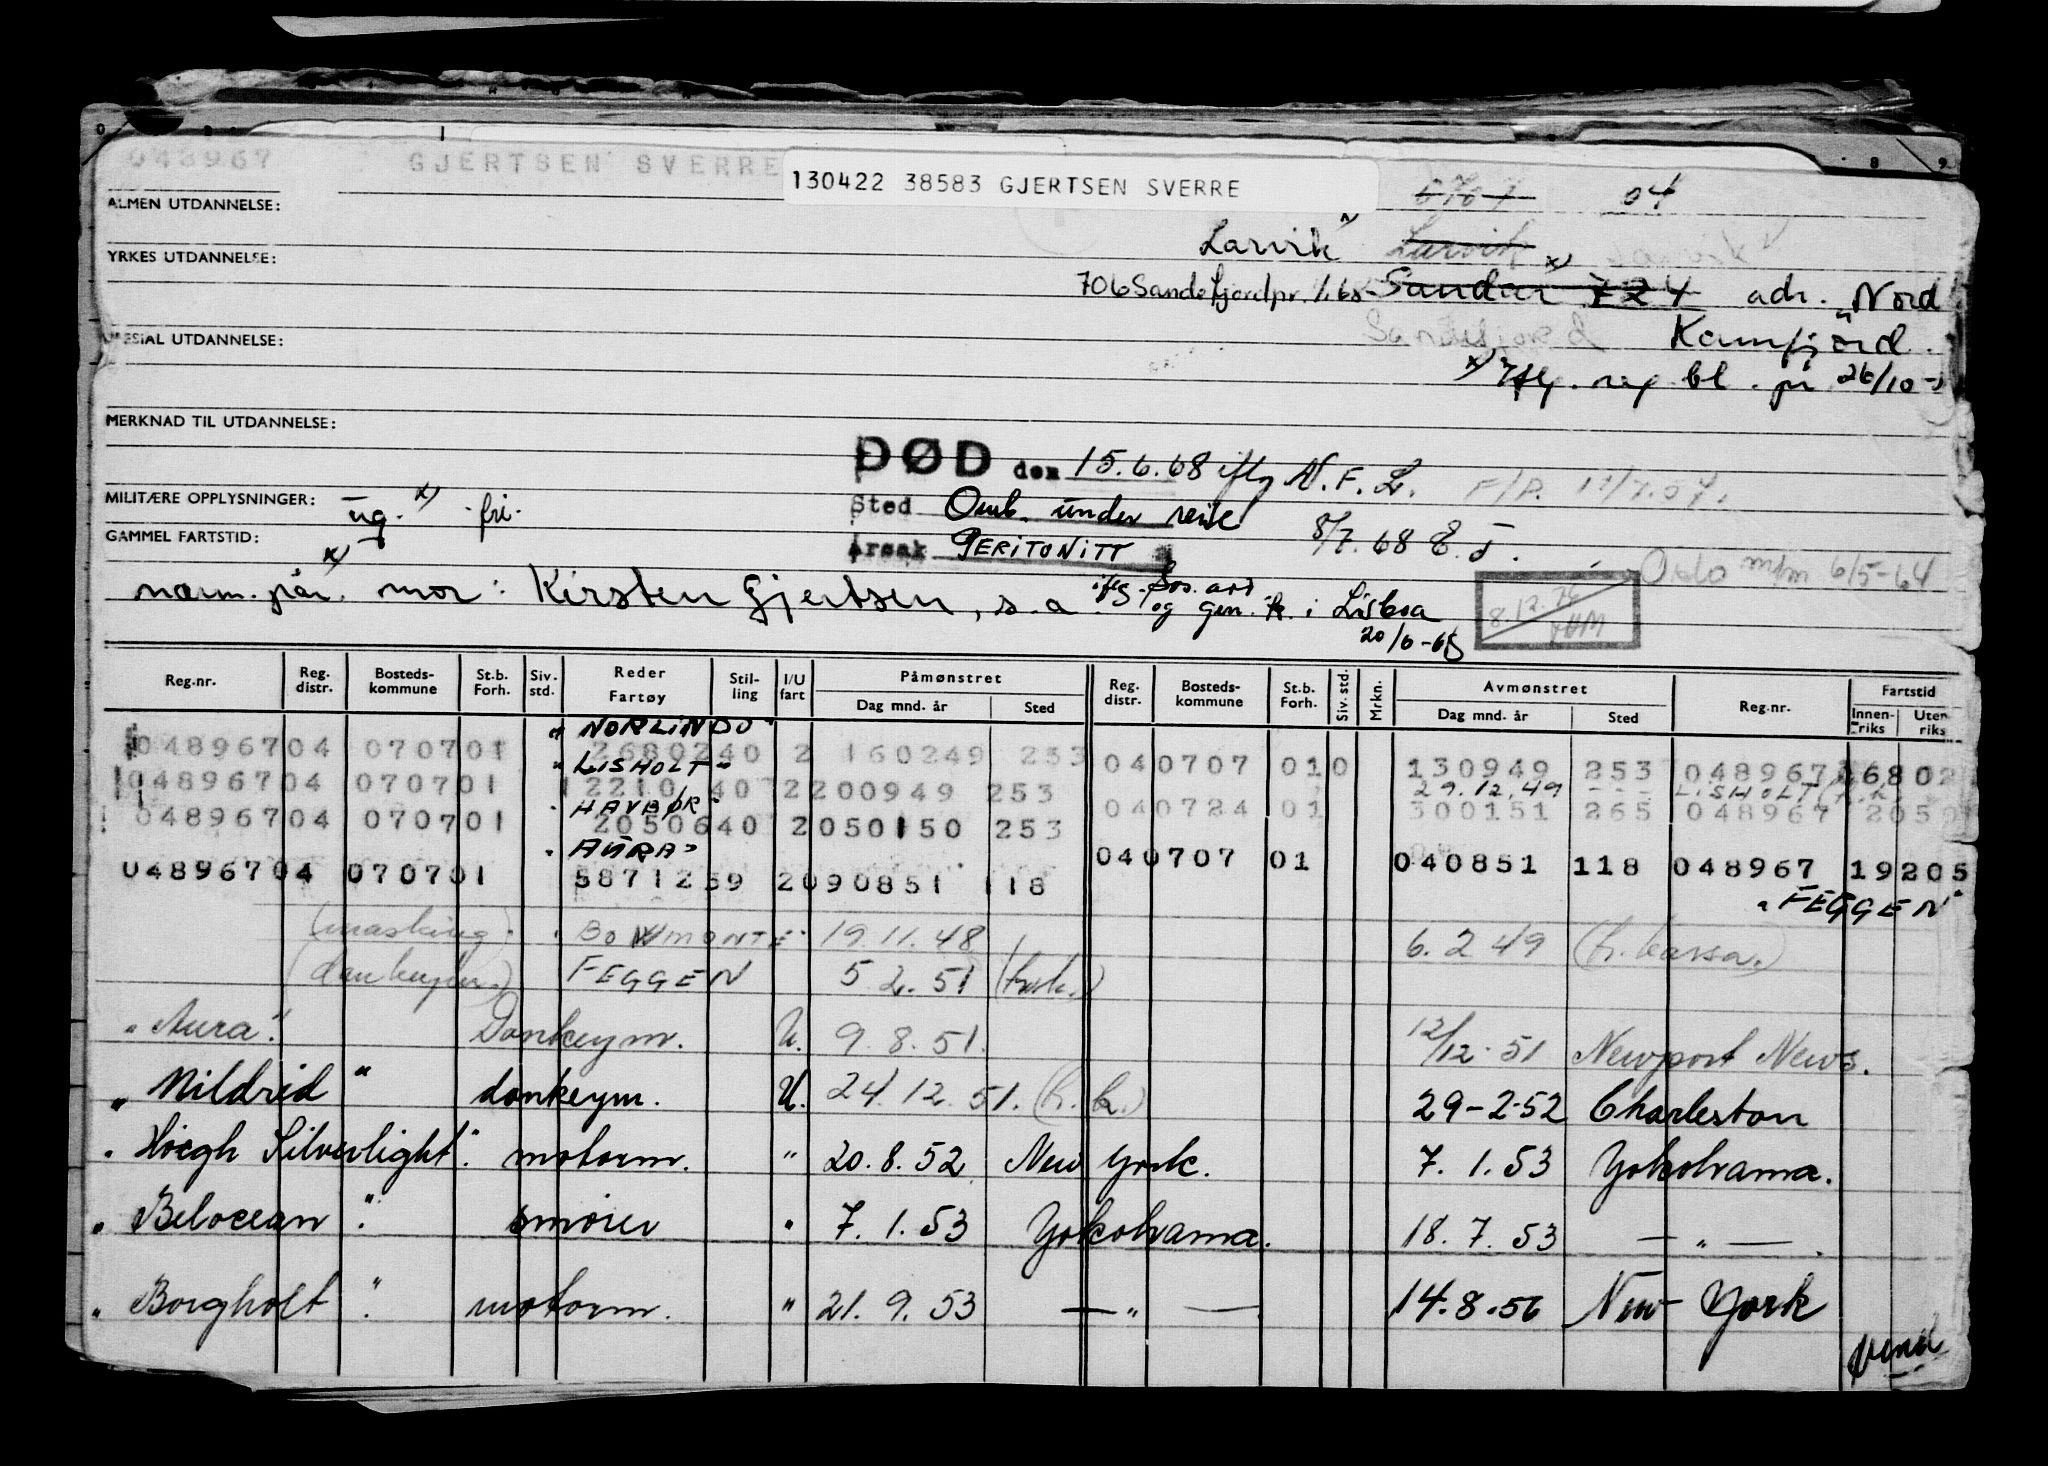 048967 GJERTSEN SVERRE
130422 38583 GJERTSEN SVERRE
0707 04
ALMEN UTDANNELSE:
Larvik Larvik
YRKES UTDANNELSE:
706 Sandefjord pr. 1/1.68 Sandar 724 adr. Nord
SPESIAL UTDANNELSE: Sandefjord Kamfjord.
x) Iflg. reg bl. pr 26/10-
MERKNAD TIL UTDANNELSE:
DØD den 15.6.68 iflg N.F.L.
MILITÆRE OPPLYSNINGER: ug. x) fri.
Sted Omb. under reise 8/7.68 E.J.
GAMMEL FARTSTID:
Årsak PERITONITT
Oslo 6/5-64
nærm. pår. x) mor: Kirsten Gjertsen, s.a. iflg. og gen. k. i Lisboa
20/6-68
8.12.76
Reg.nr. Reg. distr. Bosteds-kommune St.b. Forh. Siv. std. Reder Fartøy Stil-ling I/U fart Påmønstret Dag mnd. år Sted Reg. distr. Bosteds-kommune St.b. Forh. Siv. std. Mrkn. Avmønstret Dag mnd. år Sted Reg.nr. Fartstid Innen-riks Uten riks
"NORLINDO"
048967 04 0707 01 2680240 2 160249 253 040707 01 0 130949 253 048967 6802
"LISHOLT"
048967 04 0707 01 12210 40 2 200949 253 29.12.49 --- LISHOLT
"HAVBØR" 040724 01 300151 265 048967 205
048967 04 0707 01 2050640 2 050150 253
"AURA" 040707 01 040851 118 048967 19205
048967 04 0707 01 5871239 2 090851 118
"FEGGEN"
(masking. "BOWMONTE" 19.11.48 6.2 49 (h. kassa.)
(donkeym.) FEGGEN 5.2.51
"Aura". Donkeym. U. 9.8.51. 12/12.51 Newport News.
"Mildrid" donkeym. U. 24.12.51. (h.k.) 29-2-52 Charleston
"Höegh Silverlight". motorm. " 20.8.52 New York. 7.1.53 Yokohama.
"Belocean". smører " 7.1.53 Yokohama. 18.7.53 — " —.
"Borgholt". motorm. " 21.9.53 — " — 14.8.56 New-York
vend